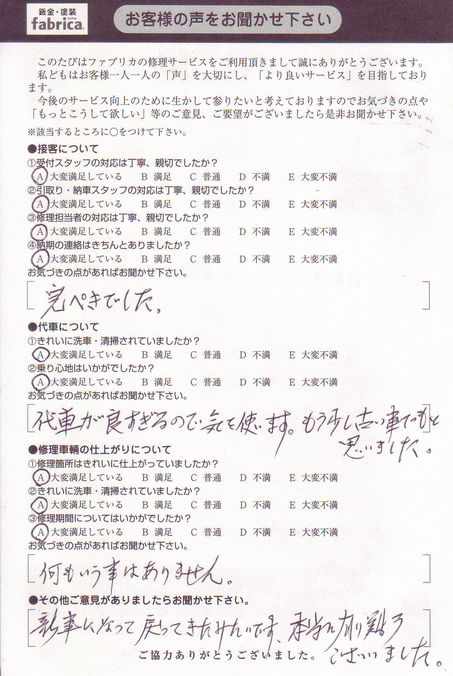 鈑金・塗装
fabrica.
お客様の声をお聞かせ下さい
このたびはファブリカの修理サービスをご利用頂きまして誠にありがとうございます。
私どもはお客様一人一人の「声」を大切にし、「より良いサービス」を目指しており
ます。
今後のサービス向上のために生かして参りたいと考えておりますのでお気づきの点や
「もっとこうして欲しい」等のご意見、ご要望がございましたら是非お聞かせ下さい。
※該当するところに○をつけて下さい。
●接客について
①受付スタッフの対応は丁寧、親切でしたか？
A 大変満足している B 満足 C 普通 D 不満 E 大変不満
②引取り・納車スタッフの対応は丁寧、親切でしたか？
A 大変満足している B 満足 C 普通 D 不満 E 大変不満
③修理担当者の対応は丁寧、親切でしたか？
A 大変満足している B 満足 C 普通 D 不満 E 大変不満
④納期の連絡はきちんとありましたか？
A 大変満足している B 満足 C 普通 D 不満 E 大変不満
お気づきの点があればお聞かせ下さい。
完ぺきでした。
●代車について
①きれいに洗車・清掃されていましたか？
A 大変満足している B 満足 C 普通 D 不満 E 大変不満
②乗り心地はいかがでしたか？
A 大変満足している B 満足 C 普通 D 不満 E 大変不満
お気づきの点があればお聞かせ下さい。
代車が良すぎるので気を使います。もう少し古い車でもと
思いました。
●修理車輌の仕上がりについて
①修理箇所はきれいに仕上がっていましたか？
A 大変満足している B 満足 C 普通 D 不満 E 大変不満
②きれいに洗車・清掃されていましたか？
A 大変満足している B 満足 C 普通 D 不満 E 大変不満
③修理期間についてはいかがでしたか？
A 大変満足している B 満足 C 普通 D 不満 E 大変不満
お気づきの点があればお聞かせ下さい。
何もいう事はありません。
●その他ご意見がありましたらお聞かせ下さい。
新車になって戻ってきたみたいです、本当に有り難う
ございました。
ご協力ありがとうございました。